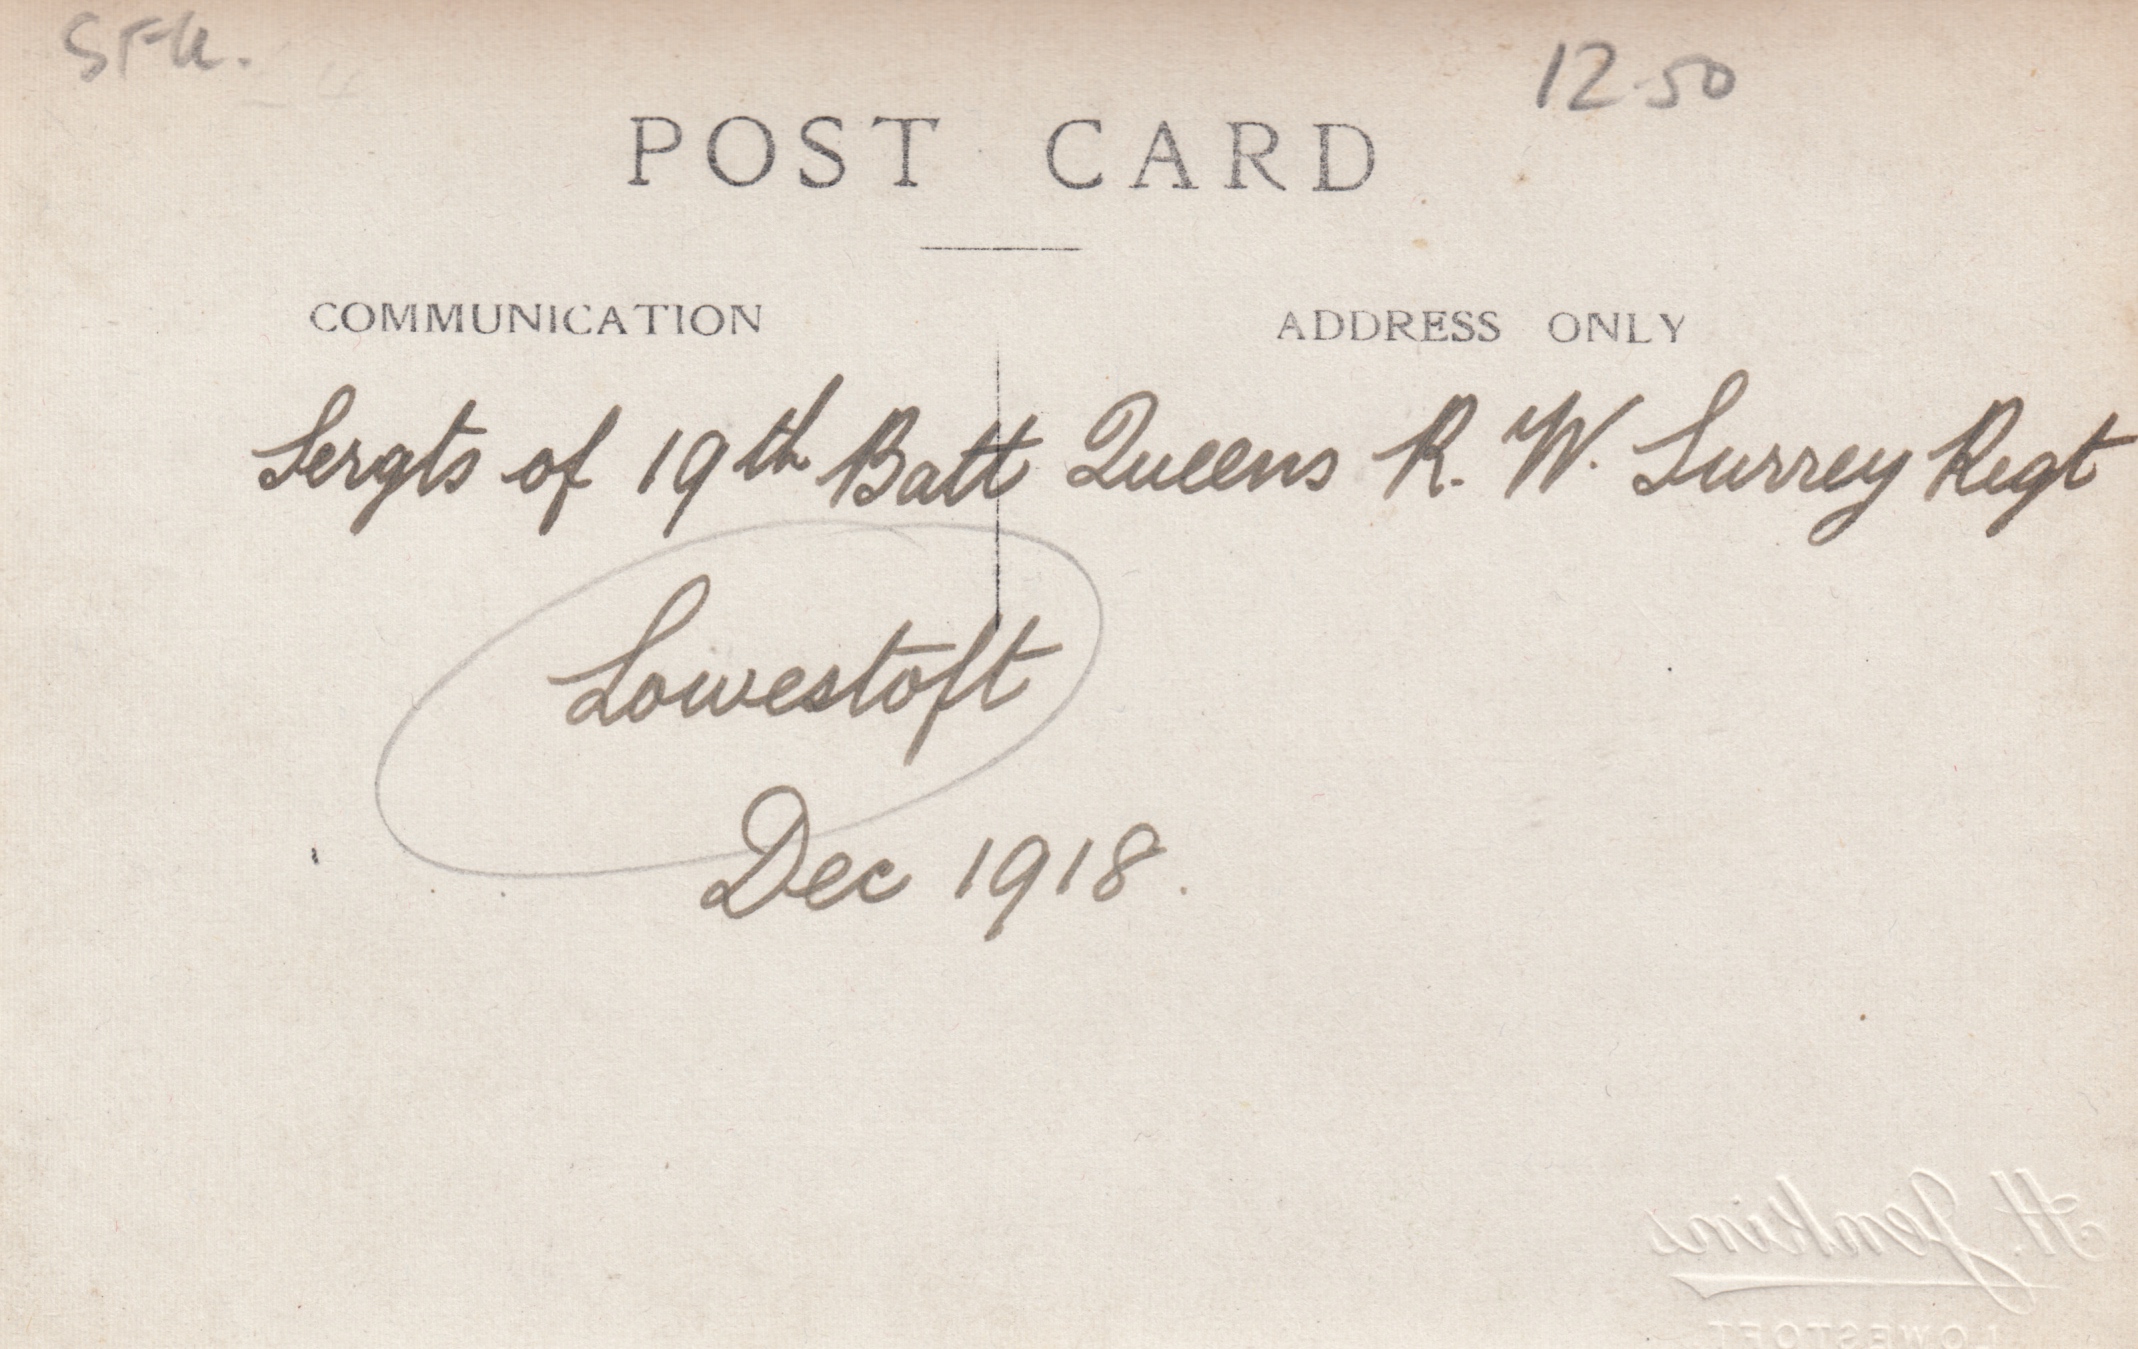 SFK.
12-50
POST CARD
COMMUNICATION
ADDRESS ONLY
Sergts of 19th Batt Queens R. W. Surrey Regt
Lowestoft
Dec 1918.
H. Jenkins
LOWESTOFT